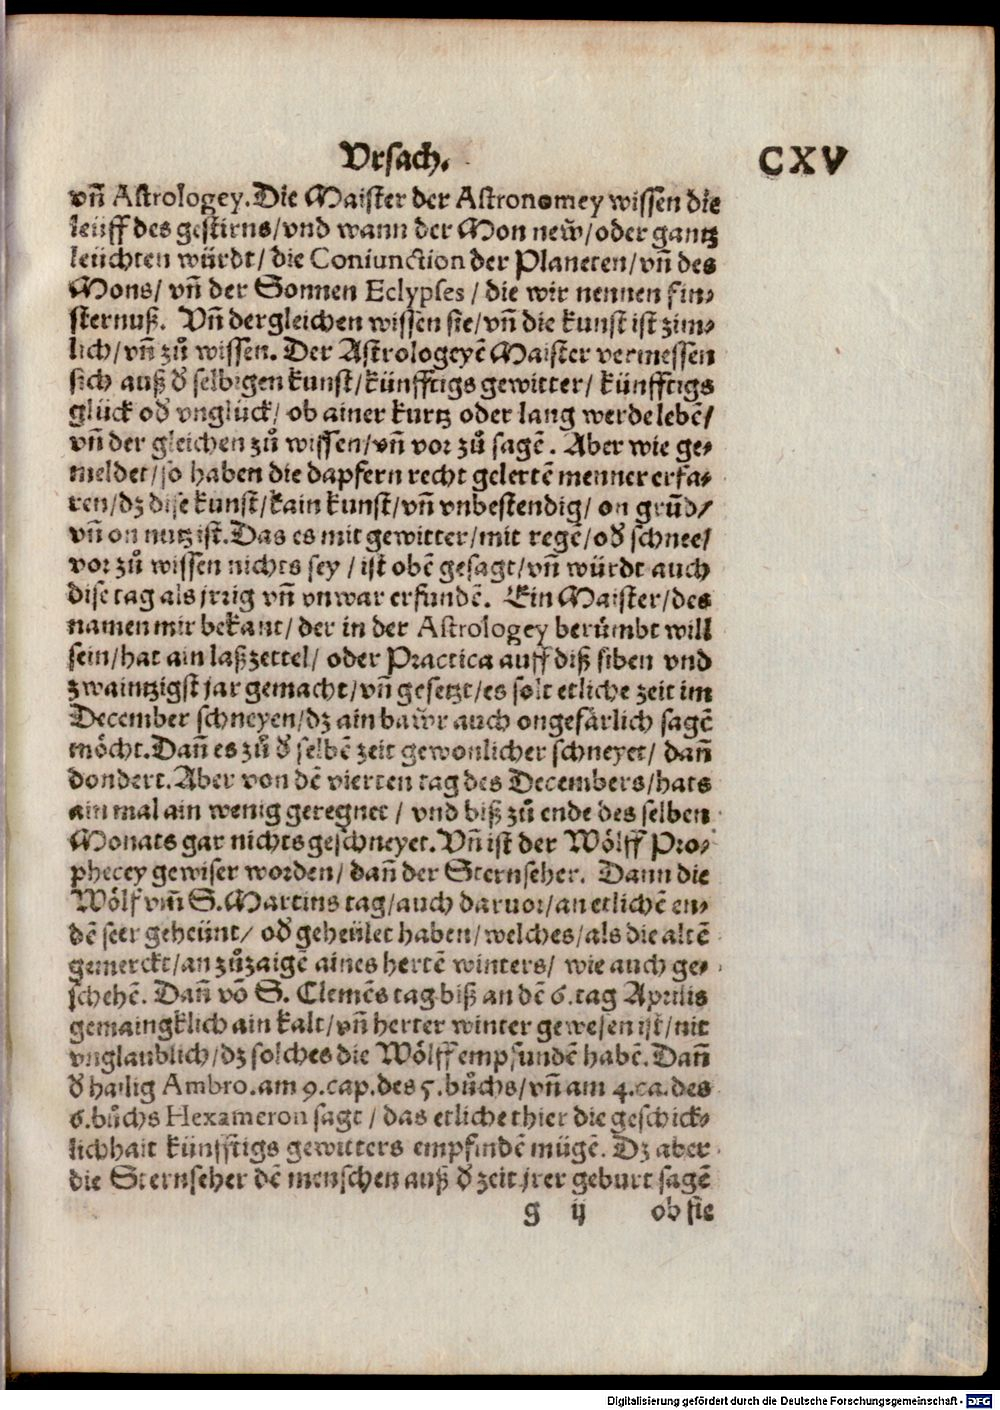 Vrsach. CXV
vñ Astrologey. Die Maister der Astronomey wissen die
leüff des gestirns/vnd wann der Mon new̃/oder gantz
leüchten würdt/ die Coniunction der Planeten/vñ des
Mons/ vñ der Sonnen Eclypses / die wir nennen fin⸗
sternuß. Vñ dergleichen wissen sie/vñ die kunst ist zim⸗
lich/vñ zů wissen. Der Astrologeyẽ Maister vermessen
sich auß đ selbigen kunst/künfftigs gewitter/ künfftigs
glück ođ vnglück/ ob ainer kurtz oder lang werde lebẽ/
vñ der gleichen zů wissen/vñ vor zů sagẽ. Aber wie ge⸗
meldet/so haben die dapfern recht gelertẽ menner erfa⸗
ren/dz dise kunst/kain kunst/vñ vnbestendig/ on grũd/
vñ on nutz ist. Das es mit gewitter/mit regẽ/ođ schnee/
vor zů wissen nichts sey / ist obẽ gesagt/vñ würdt auch
dise tag als jrrig vñ vnwar erfundẽ. Ein Maister/des
namen mir bekant/ der in der Astrologey berůmbt will
sein/hat ain laßzettel/ oder Practica auff diß siben vnd
zwaintzigst jar gemacht/vñ gesetzt/es solt etliche zeit im
December schneyen/dz ain baw̃r auch ongefärlich sagẽ
möcht. Dañ es zů đ selbẽ zeit gewonlicher schneyet/ dañ
dondert. Aber von dẽ vierten tag des Decembers/hats
ain mal ain wenig geregnet / vnd biß zů ende des selben
Monats gar nichts geschneyet. Vñ ist der Wölff Pro⸗
phecey gewiser worden/ dañ der Sternseher. Dann die
Wölf vm̃ S. Martins tag/auch daruor/an etlichẽ en⸗
dẽ seer geheünt/ ođ geheület haben/welches/als die altẽ
gemerckt/an zůzaigẽ aines hertẽ winters/ wie auch ge⸗
schehẽ. Dañ võ S. Clemẽs tag biß an dẽ 6. tag Aprilis
gemaingklich ain kalt/vñ herter winter gewesen ist/nit
vnglaublich/dz solches die Wölff empfundẽ habẽ. Dañ
đ hailig Ambro. am 9. cap. des 5. bůchs/vñ am 4. ca. des
6. bůchs Hexameron sagt / das etliche thier die geschick⸗
lichhait künfftigs gewitters empfindẽ mügẽ. Dz aber
die Sternseher dẽ menschen auß đ zeit jrer geburt sagẽ
g ij ob sie
Digitalisierung gefördert durch die Deutsche Forschungsgemeinschaft - DFG